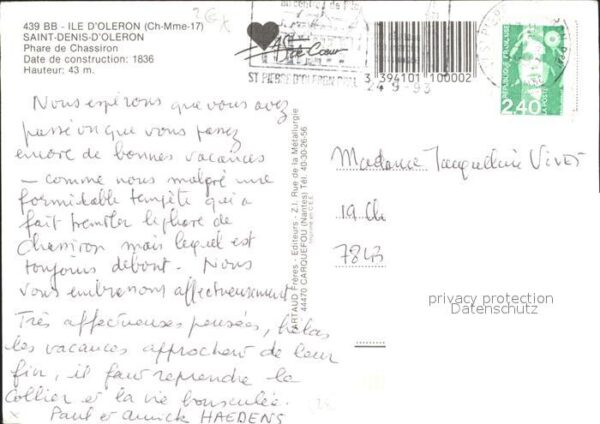 439 BB - ILE D'OLERON (Ch-Mme-17)
SAINT-DENIS-D'OLERON
Phare de Chassiron
Date de construction: 1836
Hauteur: 43 m.
ST PIERRE D'OLERON
3 394101 100002
24-9-93
REPUBLIQUE FRANÇAISE
2,40
LA POSTE
Nous espérons que vous avez
passé ou que vous passez
encore de bonnes vacances
- comme nous malgré une
formidable tempête qui a
fait trembler le phare de
Chassiron mais lequel est
toujours debout. Nous
vous embrassons affectueusement
Très affectueuses pensées, hélas
les vacances approchent de leur
fin, il faut reprendre le
collier et la vie bousculée.
Paul et Annick HAEDENS
ARTAUD Frères - Editeurs - Z.I. Rue de la Métallurgie
44470 CARQUEFOU (Nantes) Tél. 40-30-26-56
Imprimé en C.E.E.
Madame Jacqueline Vivet
19 Ch
7843
privacy protection
Datenschutz